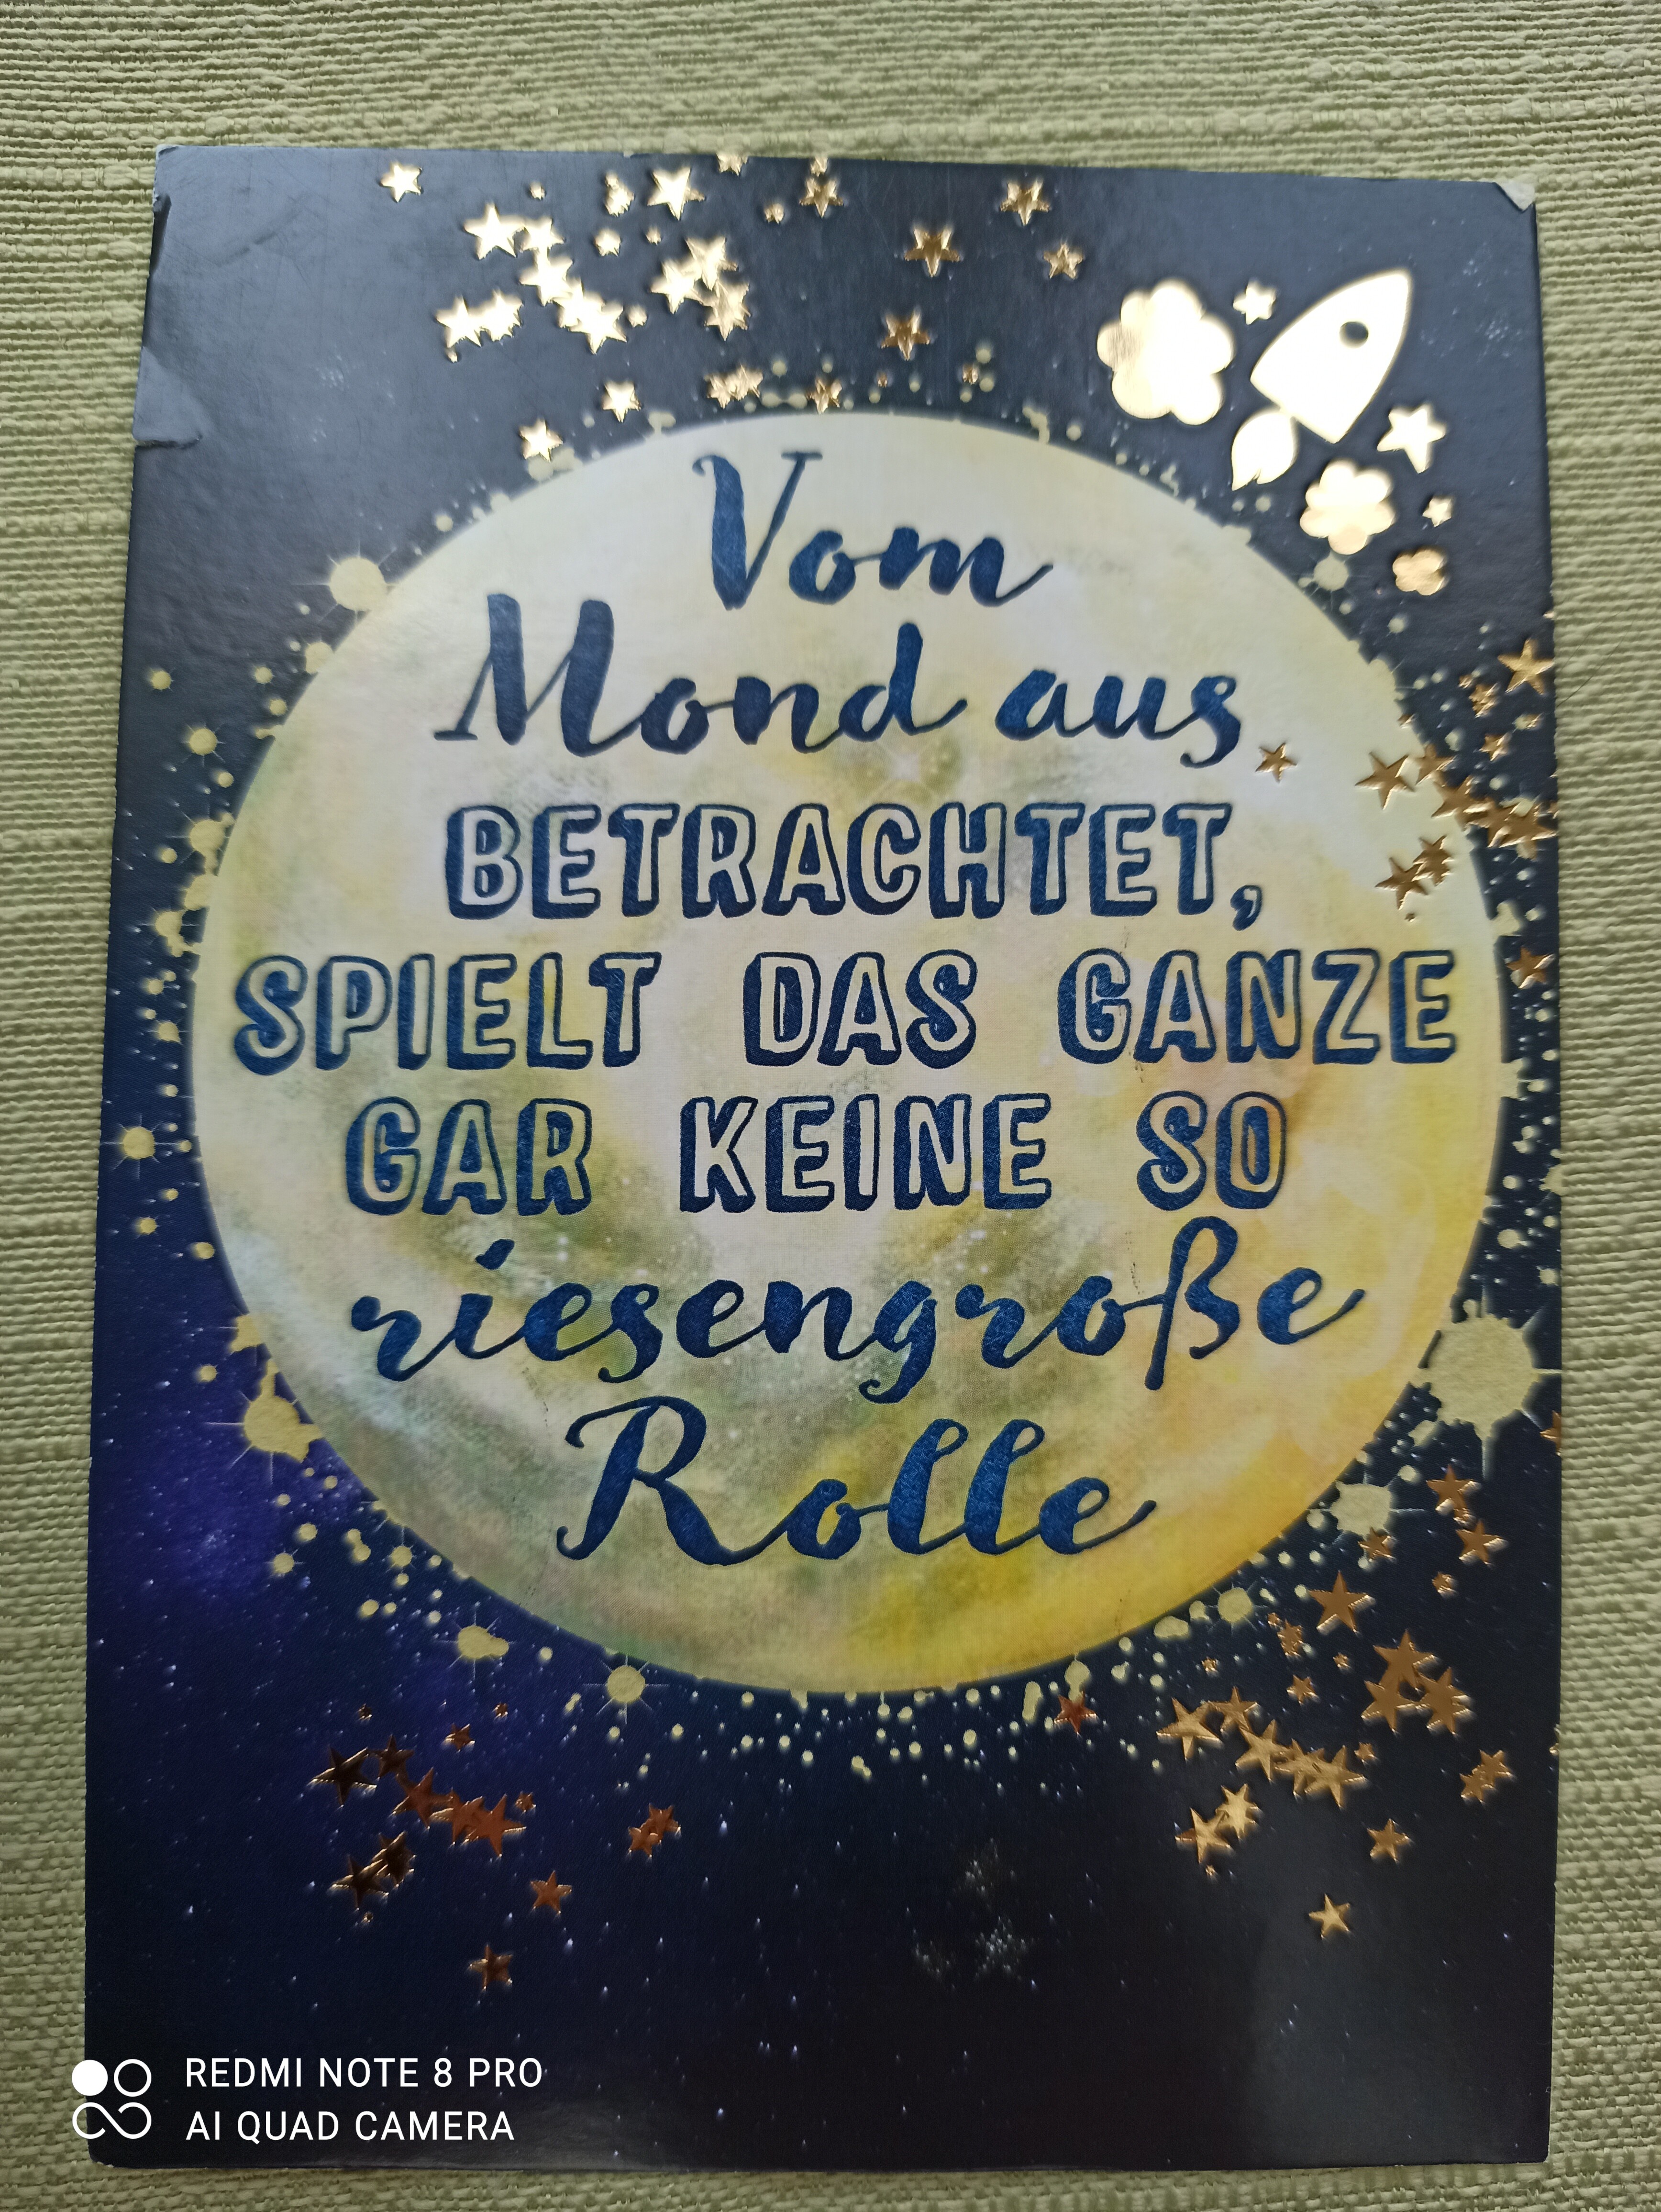 Vom
Mond aus
BETRACHTET,
SPIELT DAS GANZE
GAR KEINE SO
riesengroße
Rolle
REDMI NOTE 8 PRO
AI QUAD CAMERA